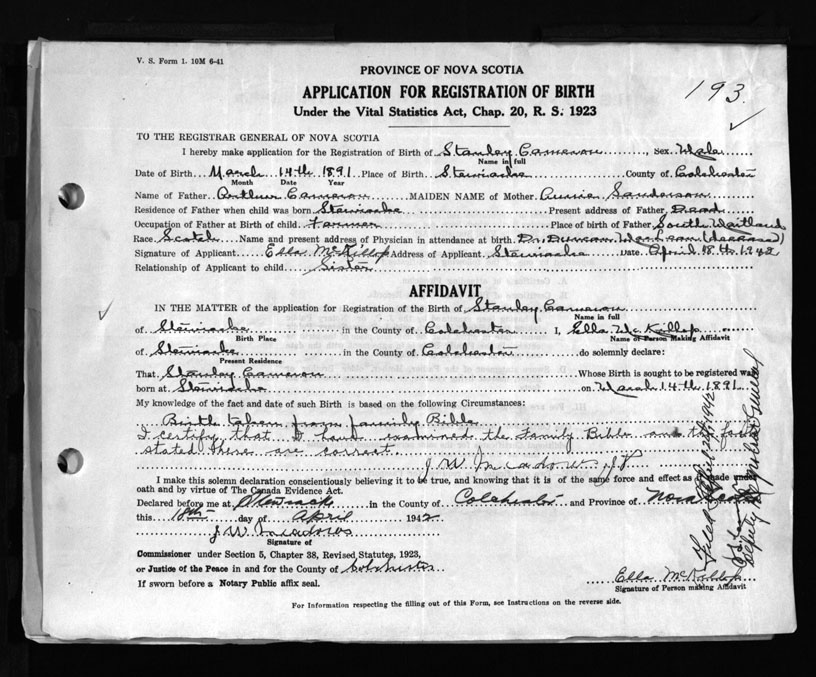 V. S. Form 1. 10M 6-41
PROVINCE OF NOVA SCOTIA
193
APPLICATION FOR REGISTRATION OF BIRTH
Under the Vital Statistics Act, Chap. 20, R. S. 1923
TO THE REGISTRAR GENERAL OF NOVA SCOTIA
I hereby make application for the Registration of Birth of Stanley Cameron, Sex Male
Name in full
Date of Birth March 14th 1891 Place of Birth Stewiacke County of Colchester
Month Date Year
Name of Father Arthur Cameron MAIDEN NAME of Mother Annie Sanderson
Residence of Father when child was born Stewiacke Present address of Father Dead
Occupation of Father at Birth of child Farmer Place of Birth of Father South Maitland
Race Scotch Name and present address of Physician in attendance at birth Dr. Duncan (deceased)
Signature of Applicant Ella McKillop Address of Applicant Stewiacke Date April 18th 1942
Relationship of Applicant to child Sister
AFFIDAVIT
IN THE MATTER of the application for Registration of the Birth of Stanley Cameron
Name in full
of Stewiacke in the County of Colchester I, Ella McKillop
Birth Place Name of Person Making Affidavit
of Stewiacke in the County of Colchester do solemnly declare:
Present Residence
That Stanley Cameron Whose Birth is sought to be registered was
born at Stewiacke on March 14th 1891
My knowledge of the fact and date of such Birth is based on the following Circumstances:
Birth taken from family Bible
I certify that I have examined the Family Bible and the facts
stated there are correct.
J W Meadows J P
I make this solemn declaration conscientiously believing it to be true, and knowing that it is of the same force and effect as if made under
oath and by virtue of The Canada Evidence Act.
Declared before me at Stewiacke in the County of Colchester and Province of Nova Scotia
this 18th day of April 1942
J W Meadows
Signature of
Commissioner under Section 5, Chapter 38, Revised Statutes, 1923,
or Justice of the Peace in and for the County of Colchester
If sworn before a Notary Public affix seal.
Ella McKillop
Signature of Person making Affidavit
For Information respecting the filling out of this Form, see Instructions on the reverse side.
Filed April 1942
Deputy Registrar General